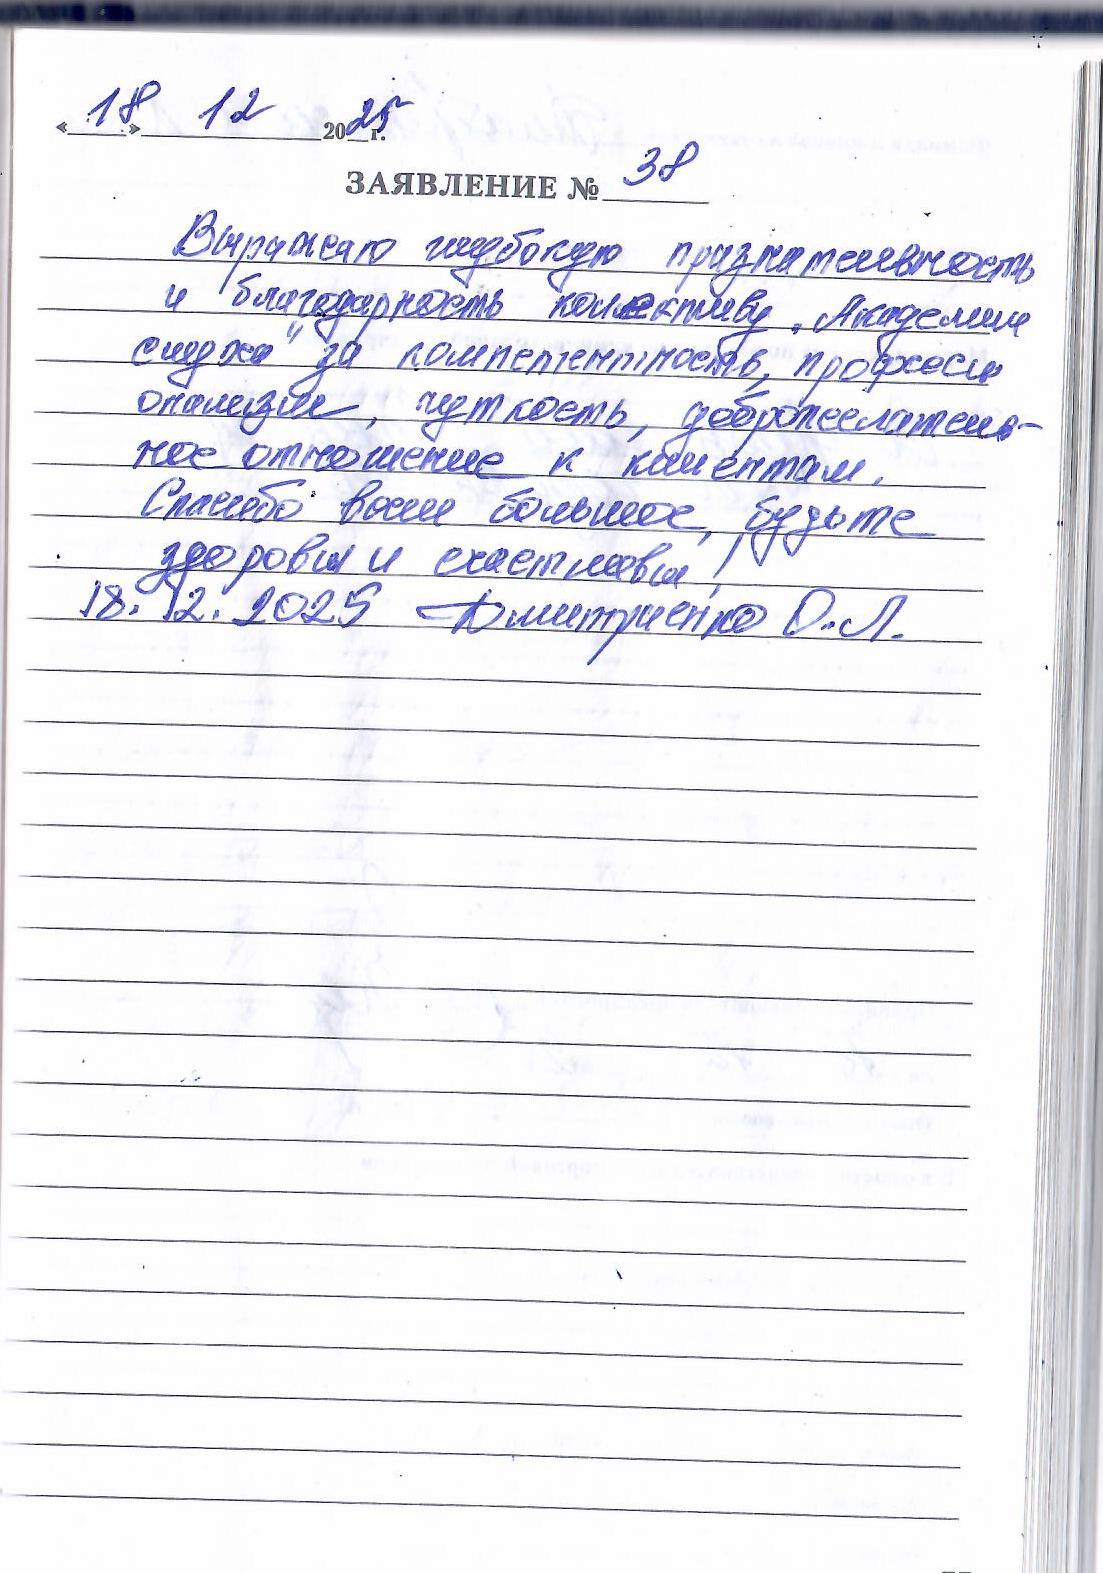 «18» 12 2025г.
ЗАЯВЛЕНИЕ № 38
Выражаю глубокую признательность
и благодарность коллективу „Академии
слуха" за компетентность, професси
онализм, чуткость, доброжелатель-
ное отношение к клиентам.
Спасибо вам большое, будьте
здоровы и счастливы!
18.12.2025 Дмитриенко О.Л.